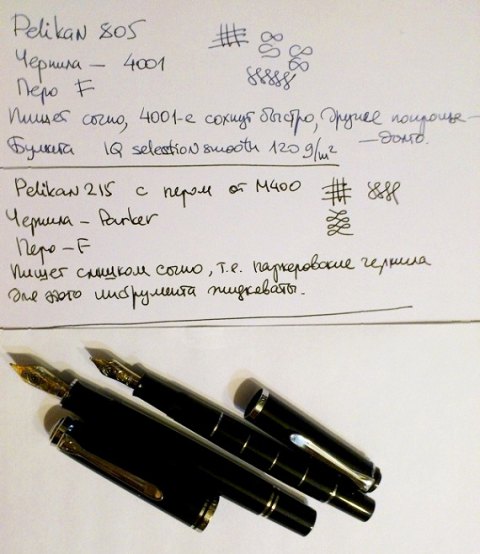 Pelikan 805
Чернила — 4001
Перо F
Пишет сочно, 4001-е сохнут быстро, другие попроще —
— долго.
Бумага IQ selection smooth 120 g/m²
Pelikan 215 с пером от M400
Чернила — Parker
Перо — F
Пишет слишком сочно, т.е. паркеровские чернила
для этого инструмента жидковаты.